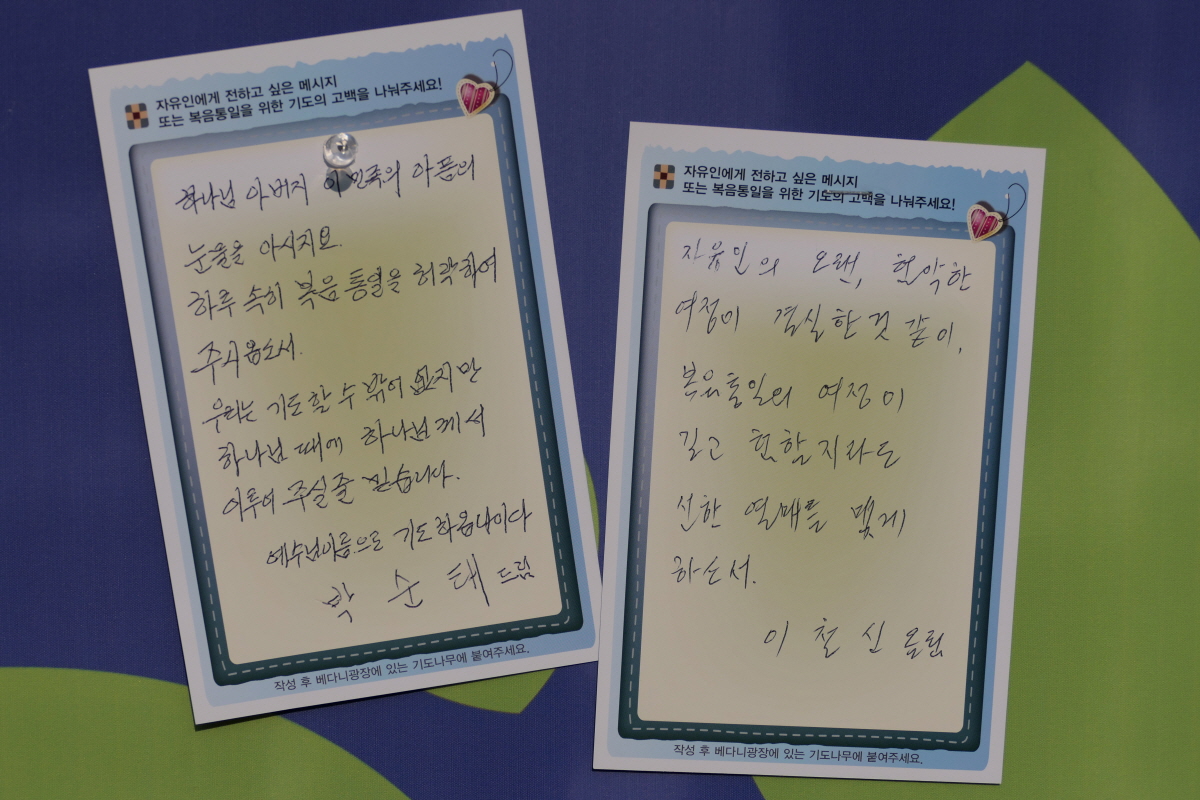 자유인에게 전하고 싶은 메시지
또는 복음통일을 위한 기도의 고백을 나눠주세요!
하나님 아버지 이 민족의 아픔의
눈물을 아시지요.
하루 속히 복음 통일을 허락하여
주시옵소서.
우리는 기도할 수 밖에 없지만
하나님 때에 하나님께서
이루어 주실줄 믿습니다.
예수님이름으로 기도하옵나이다
박 순 태 드림
작성 후 베다니광장에 있는 기도나무에 붙여주세요.
자유인에게 전하고 싶은 메시지
또는 복음통일을 위한 기도의 고백을 나눠주세요!
자유인의 오랜, 험악한
여정이 결실한것 같이,
복음통일의 여정이
길고 험할지라도
선한 열매를 맺게
하소서.
이 철 신 올림
작성 후 베다니광장에 있는 기도나무에 붙여주세요.